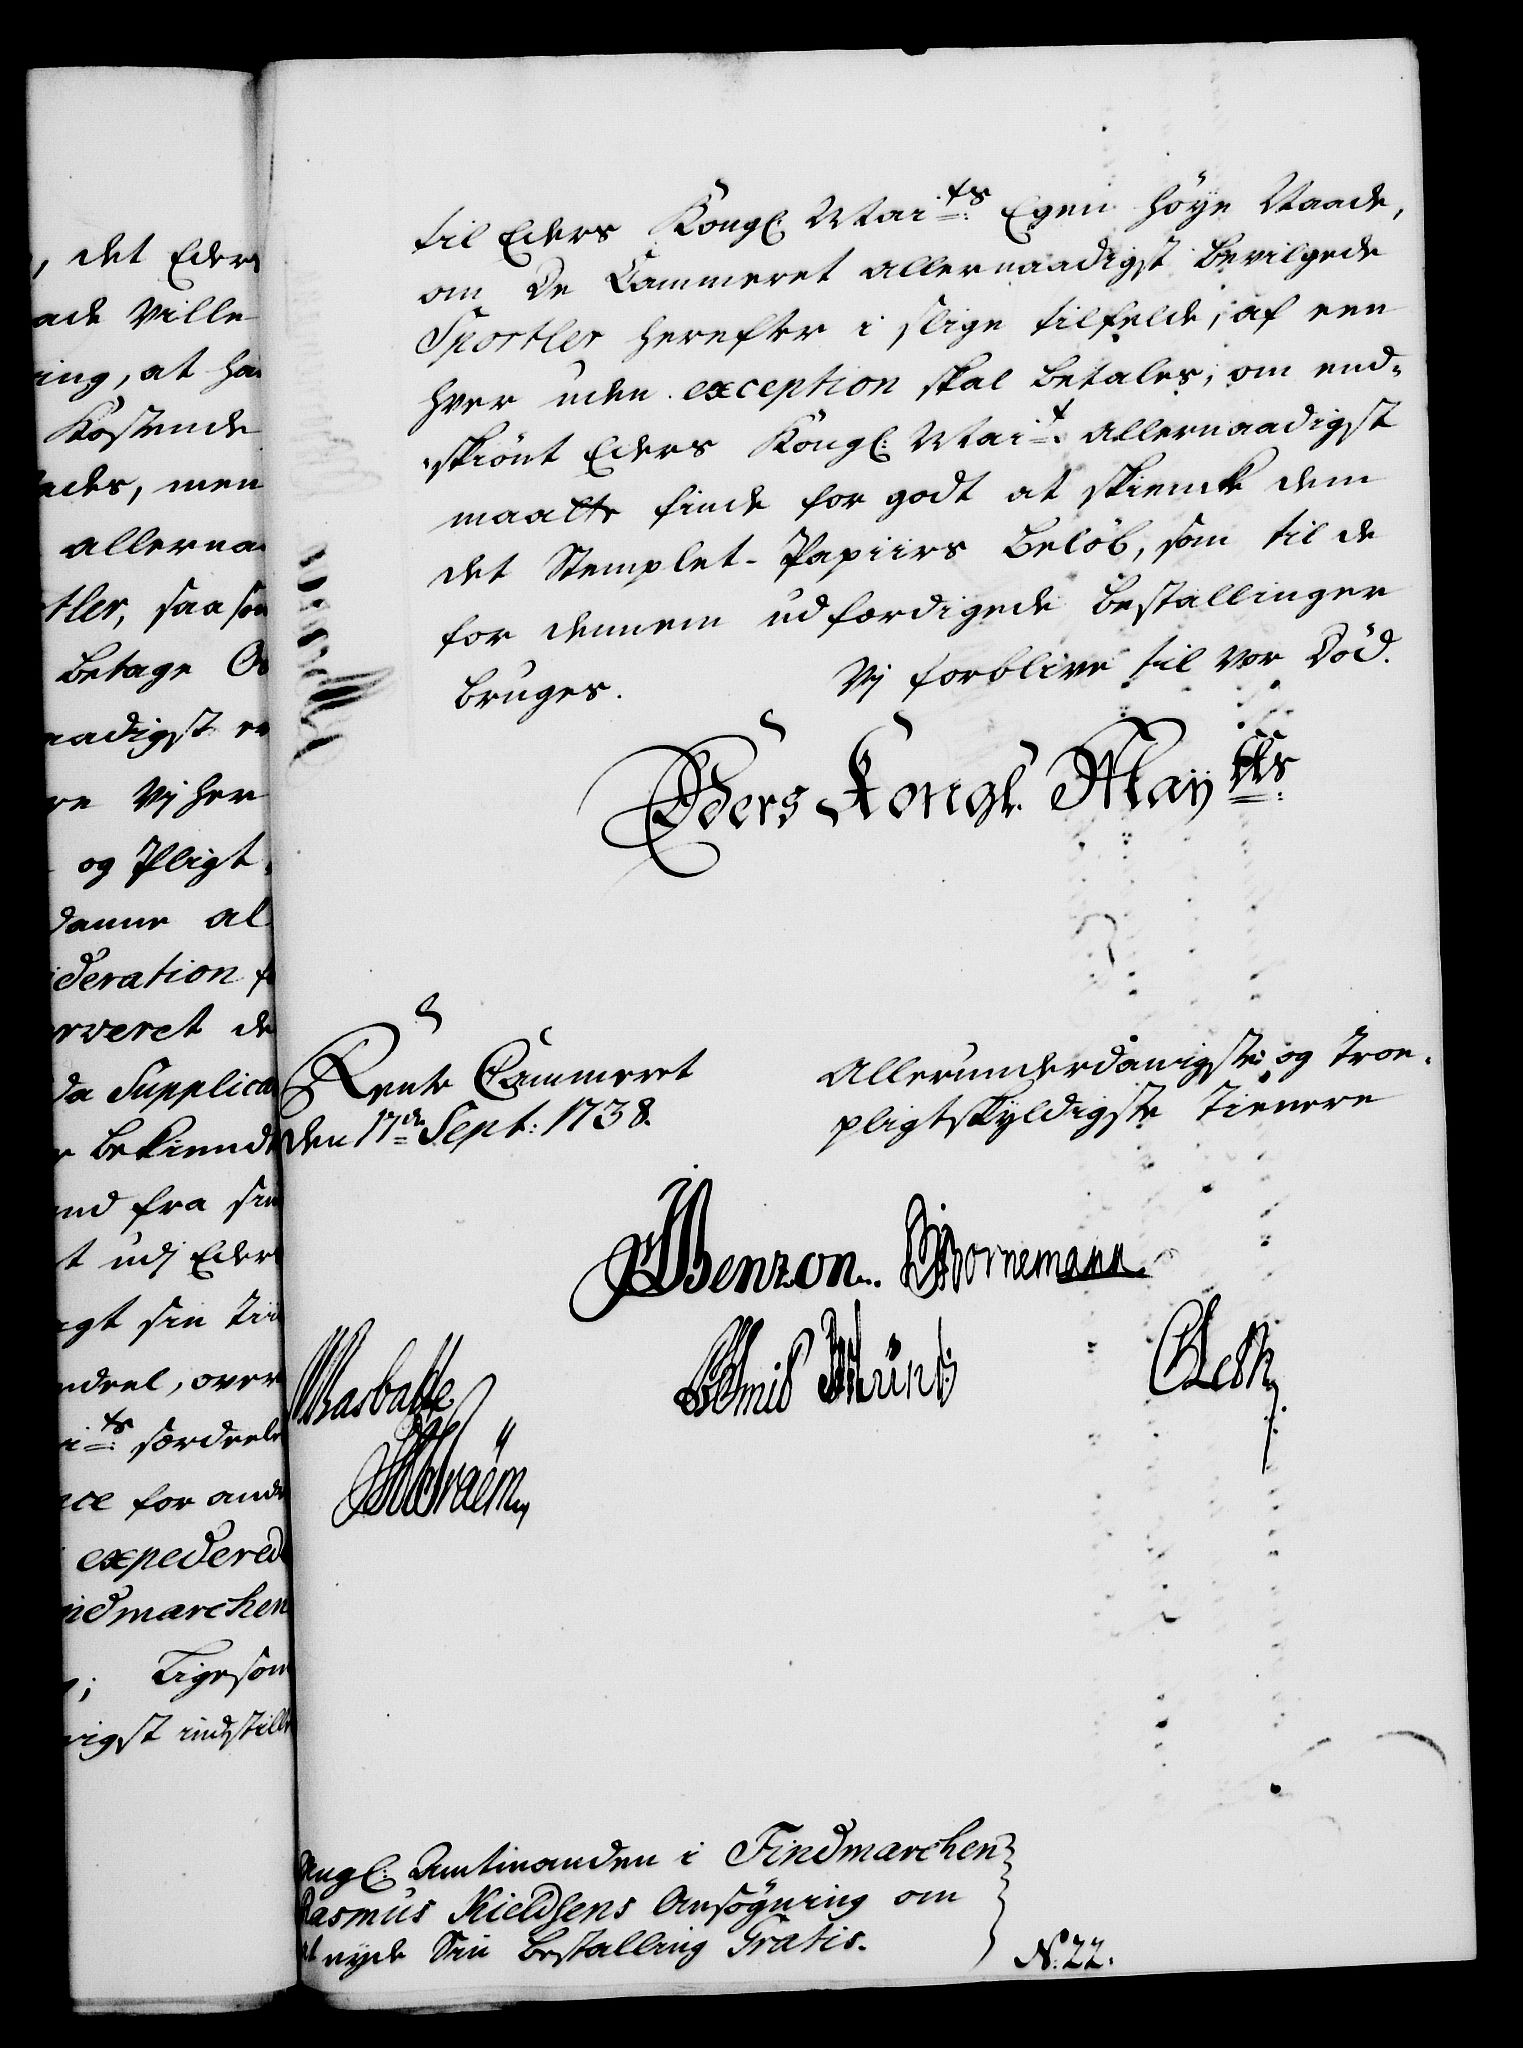 , det Eders
ade Ville
ing, at ha
Kostende
ades, men
allerna
tler, saa som
betage Os
aadigst er
re Vj her
og Pligt,
danne al
ideration f
rveret de
da Supplica
r bekiendt
nd fra sin
t udj Eders
agt sin Tiid
ndeel, over
i ts særdeele
ice for andr
expederede
indmarchen
; Ligesom
igst indstille
til Eders Kongl: Mai ts Egen høye Naade,
om De Cammeret allernaadigst bevilgede
Sportler herefter i slige tilfelde, af een
hver uden exception skal betales, om end-
skiönt Eders Kongl: Mai t allernaadigst
maatte finde for godt at skiencke dem
det Stemplet-Papiirs Belöb, som til de
for dennem udfærdigede bestallinger
bruges. Vj forblive til vor Död.
Eders Kongl. May tts
Rente Cammeret
den 17de Sept: 1738.
Allerunderdanigste og Troe-
pligtskyldigste Tienere
Benzon. Bornemann
Basballe Münt
Kongl: Amtmanden i Findmarchen
Rasmus Kieldsens Ansögning om
at nyde Sin bestalling Gratis.
N: 22.